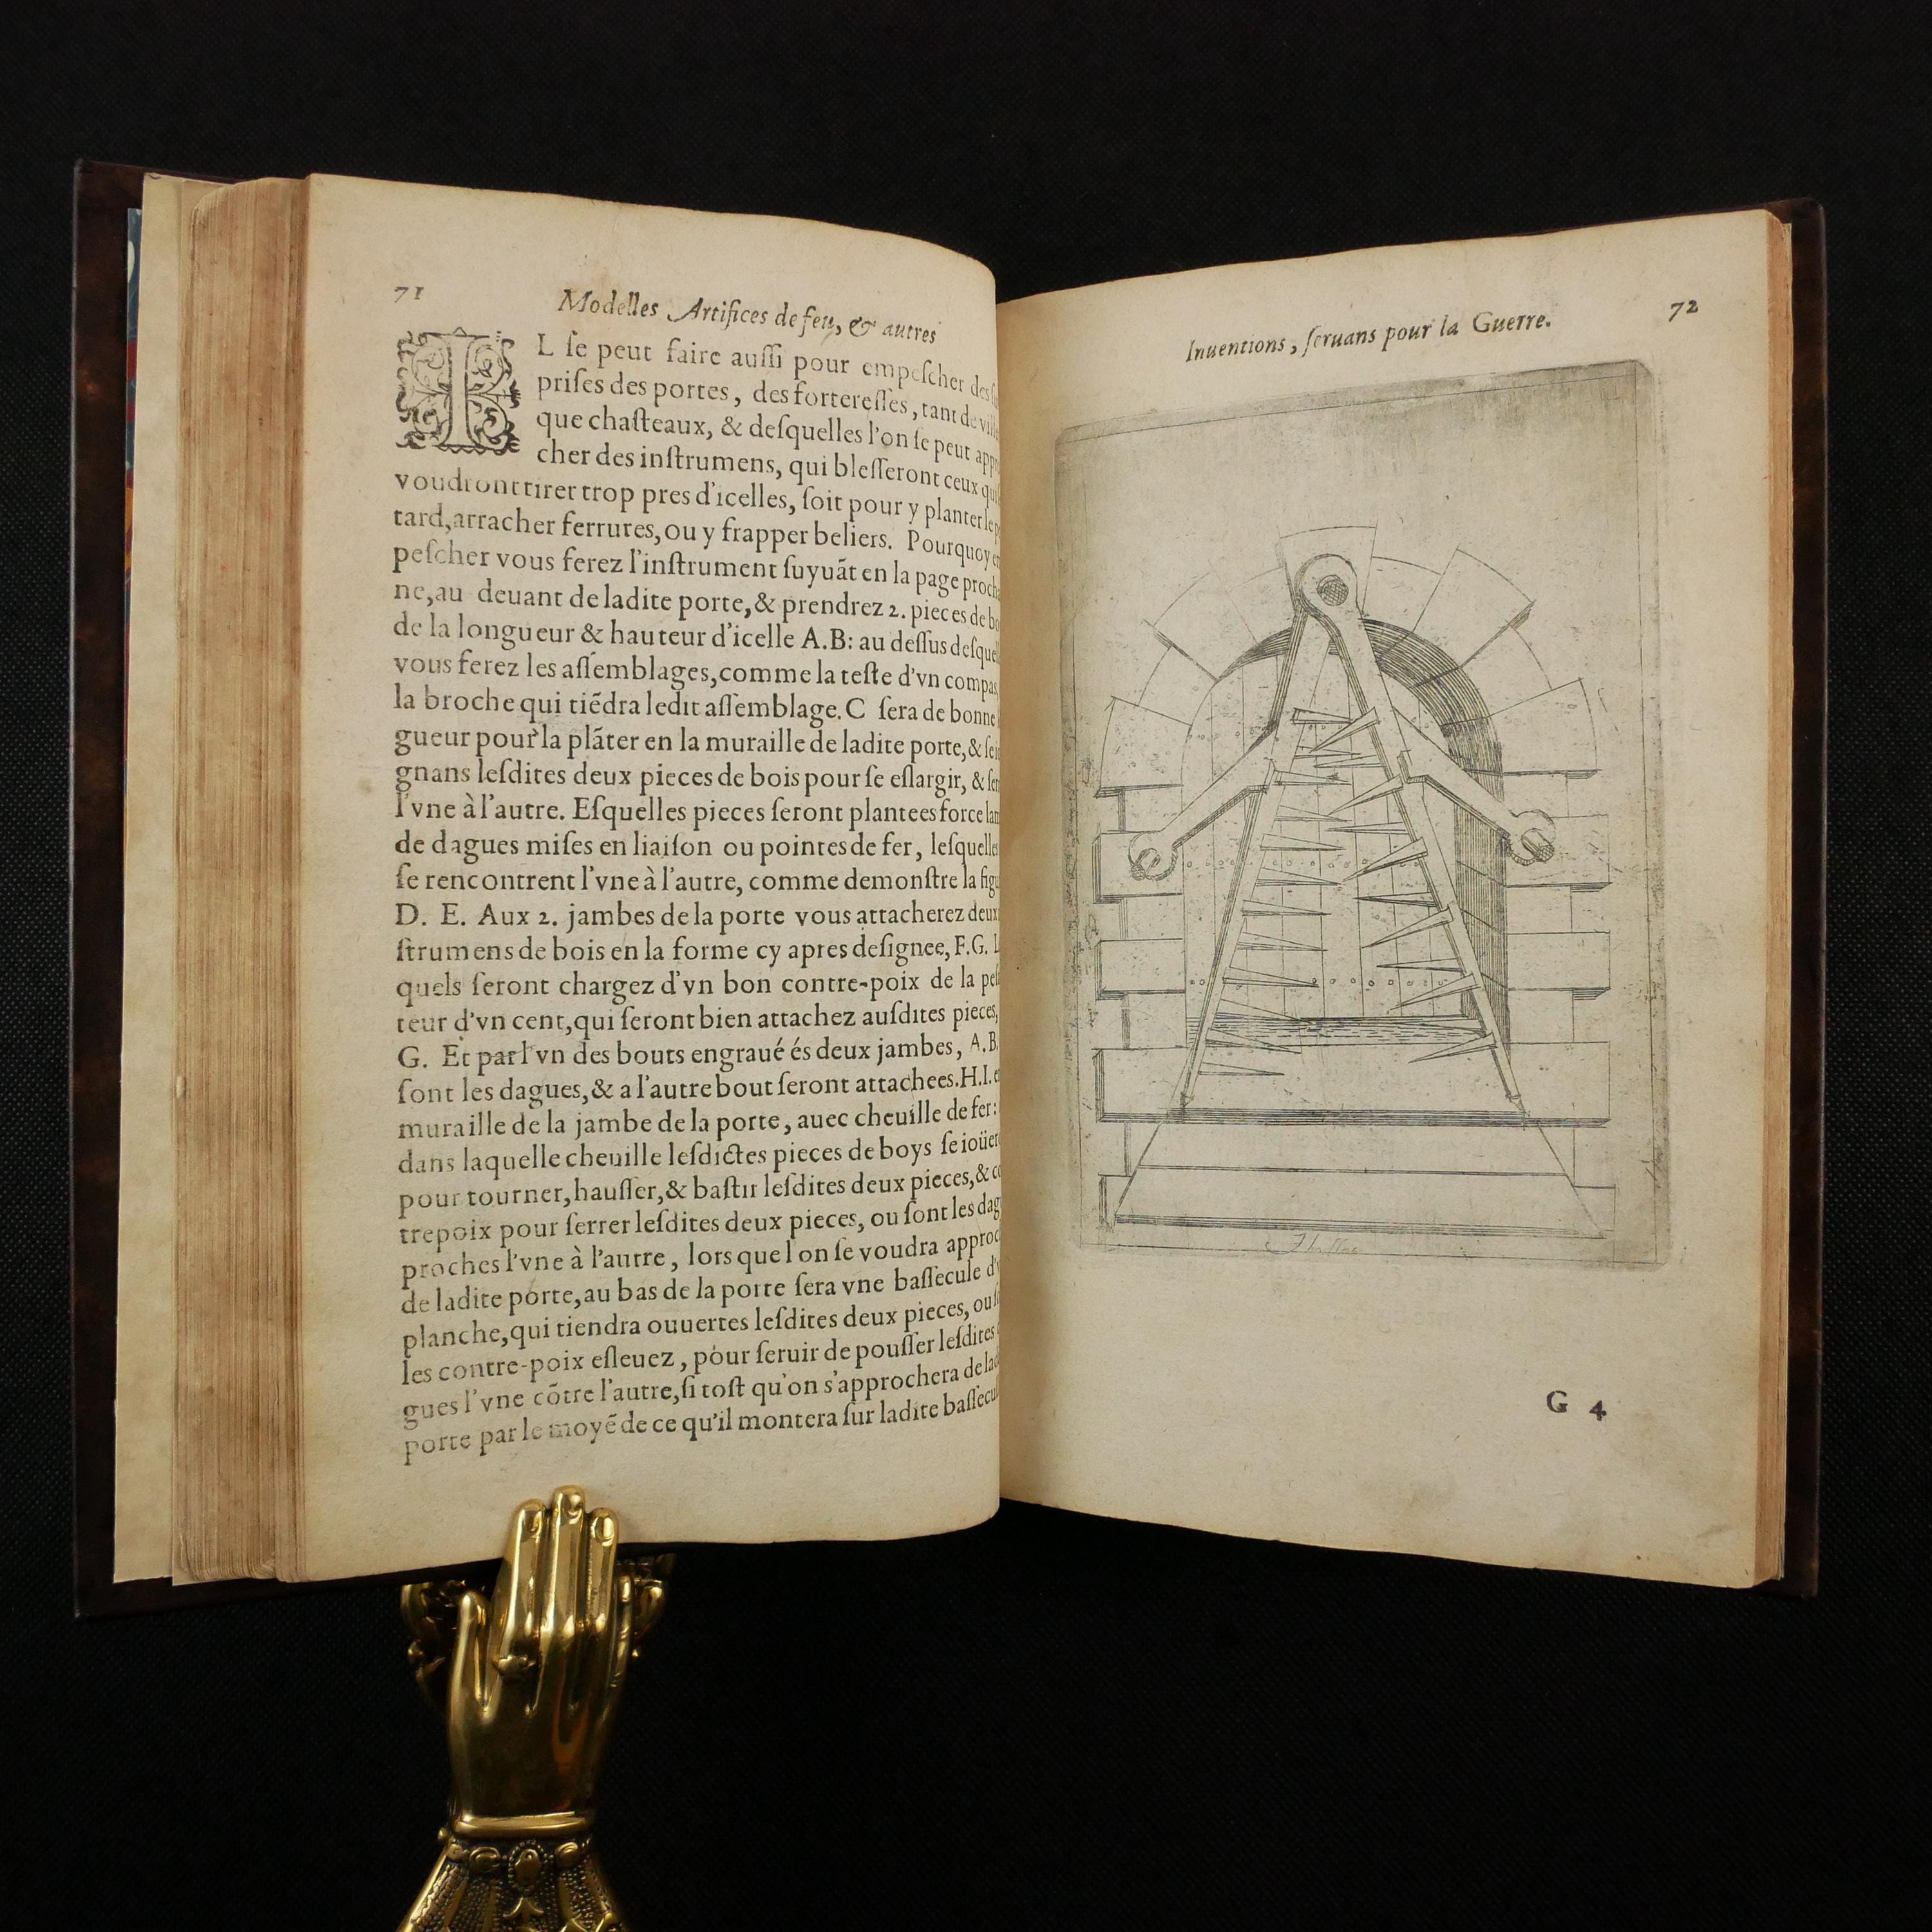 71
Modelles Artifices de feu, & autres
IL ſe peut faire auſſi pour empeſcher des
priſes des portes, des fortereſſes, tant de
que chaſteaux, & deſquelles l'on ſe peut
cher des inſtrumens, qui bleſſeront ceux
voudront tirer trop pres d'icelles, ſoit pour y planter
tard, arracher ferrures, ou y frapper beliers. Pourquoy
peſcher vous ferez l'inſtrument ſuyuãt en la page
ne, au deuant de ladite porte, & prendrez 2. pieces de
de la longueur & hauteur d'icelle A.B: au deſſus
vous ferez les aſſemblages, comme la teſte d'vn compas,
la broche qui tiẽdra ledit aſſemblage. C ſera de bonne
gueur pour la plãter en la muraille de ladite porte, &
gnans leſdites deux pieces de bois pour ſe eſlargir, &
l'vne à l'autre. Eſquelles pieces ſeront plantees force
de dagues miſes en liaiſon ou pointes de fer, leſquelles
ſe rencontrent l'vne à l'autre, comme demonſtre la
D. E. Aux 2. jambes de la porte vous attacherez deux
ſtrumens de bois en la forme cy apres deſignee, F.G.
quels ſeront chargez d'vn bon contre-poix de la
teur d'vn cent, qui ſeront bien attachez auſdites pieces,
G. Et par l'vn des bouts engraué és deux jambes, A.B.
ſont les dagues, & a l'autre bout ſeront attachees. H.I.
muraille de la jambe de la porte, auec cheuille de fer:
dans laquelle cheuille leſdictes pieces de boys ſe
pour tourner, hauſſer, & baſtir leſdites deux pieces, &
trepoix pour ſerrer leſdites deux pieces, ou ſont les
proches l'vne à l'autre, lors que l on ſe voudra
de ladite porte, au bas de la porte ſera vne baſſecule
planche, qui tiendra ouuertes leſdites deux pieces,
les contre-poix eſleuez, pour ſeruir de pouſſer leſdites
gues l'vne cõtre l'autre, ſi toſt qu'on s'approchera de
porte par le moyẽ de ce qu'il montera ſur ladite
Inuentions, ſeruans pour la Guerre.
72
G 4